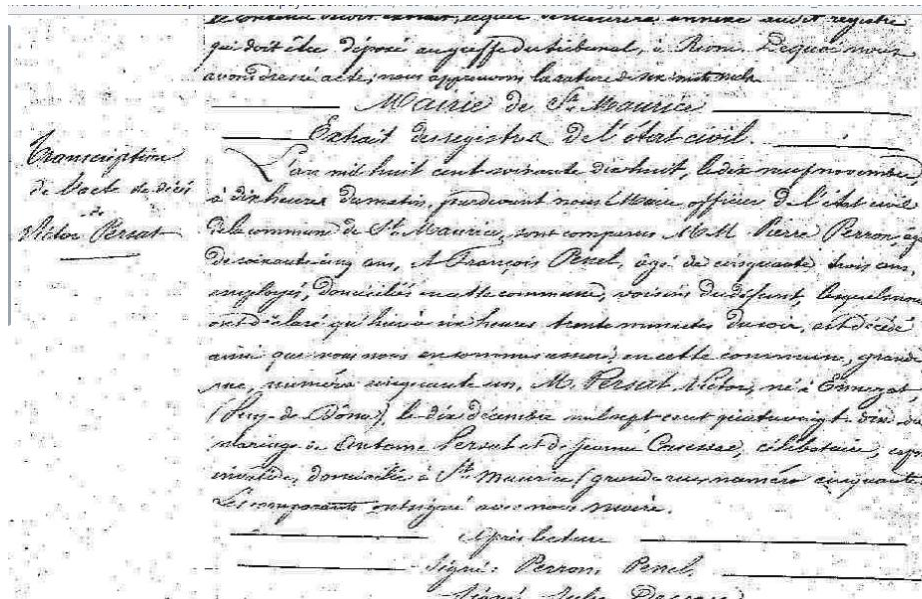 qui doit être déposé au greffe du tribunal, à Riom. De quoi nous
avons dressé acte; nous approuvons la rature de six mots nuls
Mairie de St. Maurice
Extrait des registres de l'état civil.
Transcription
de l'acte de décès
de
Victor Persat
L'an mil huit cent soixante dix huit, le dix neuf novembre
à dix heures du matin, pardevant nous Maire officier de l'état civil
de la commune de St. Maurice, sont comparus M.M. Pierre Perron, agé
de soixante cinq ans, et François Penel, âgé de cinquante trois ans
employés, domiciliés en cette commune, voisins du défunt, lesquels nous
ont déclaré qu'hier à six heures trente minutes du soir, est décédé
ainsi que nous nous en sommes assuré, en cette commune, grande
rue, numéro cinquante un, M. Persat, Victor, né à Ennezat,
(Puy-de-Dôme), le dix décembre mil sept cent quatre vingt dix, du
mariage de Antoine Persat et de Jeanne célibataire,
invalide, domicilié à St. Maurice (grande rue numéro cinquante
Les comparants ont signé avec nous maire.
Après lecture
Signé: Perron, Penel,
Signé Jules